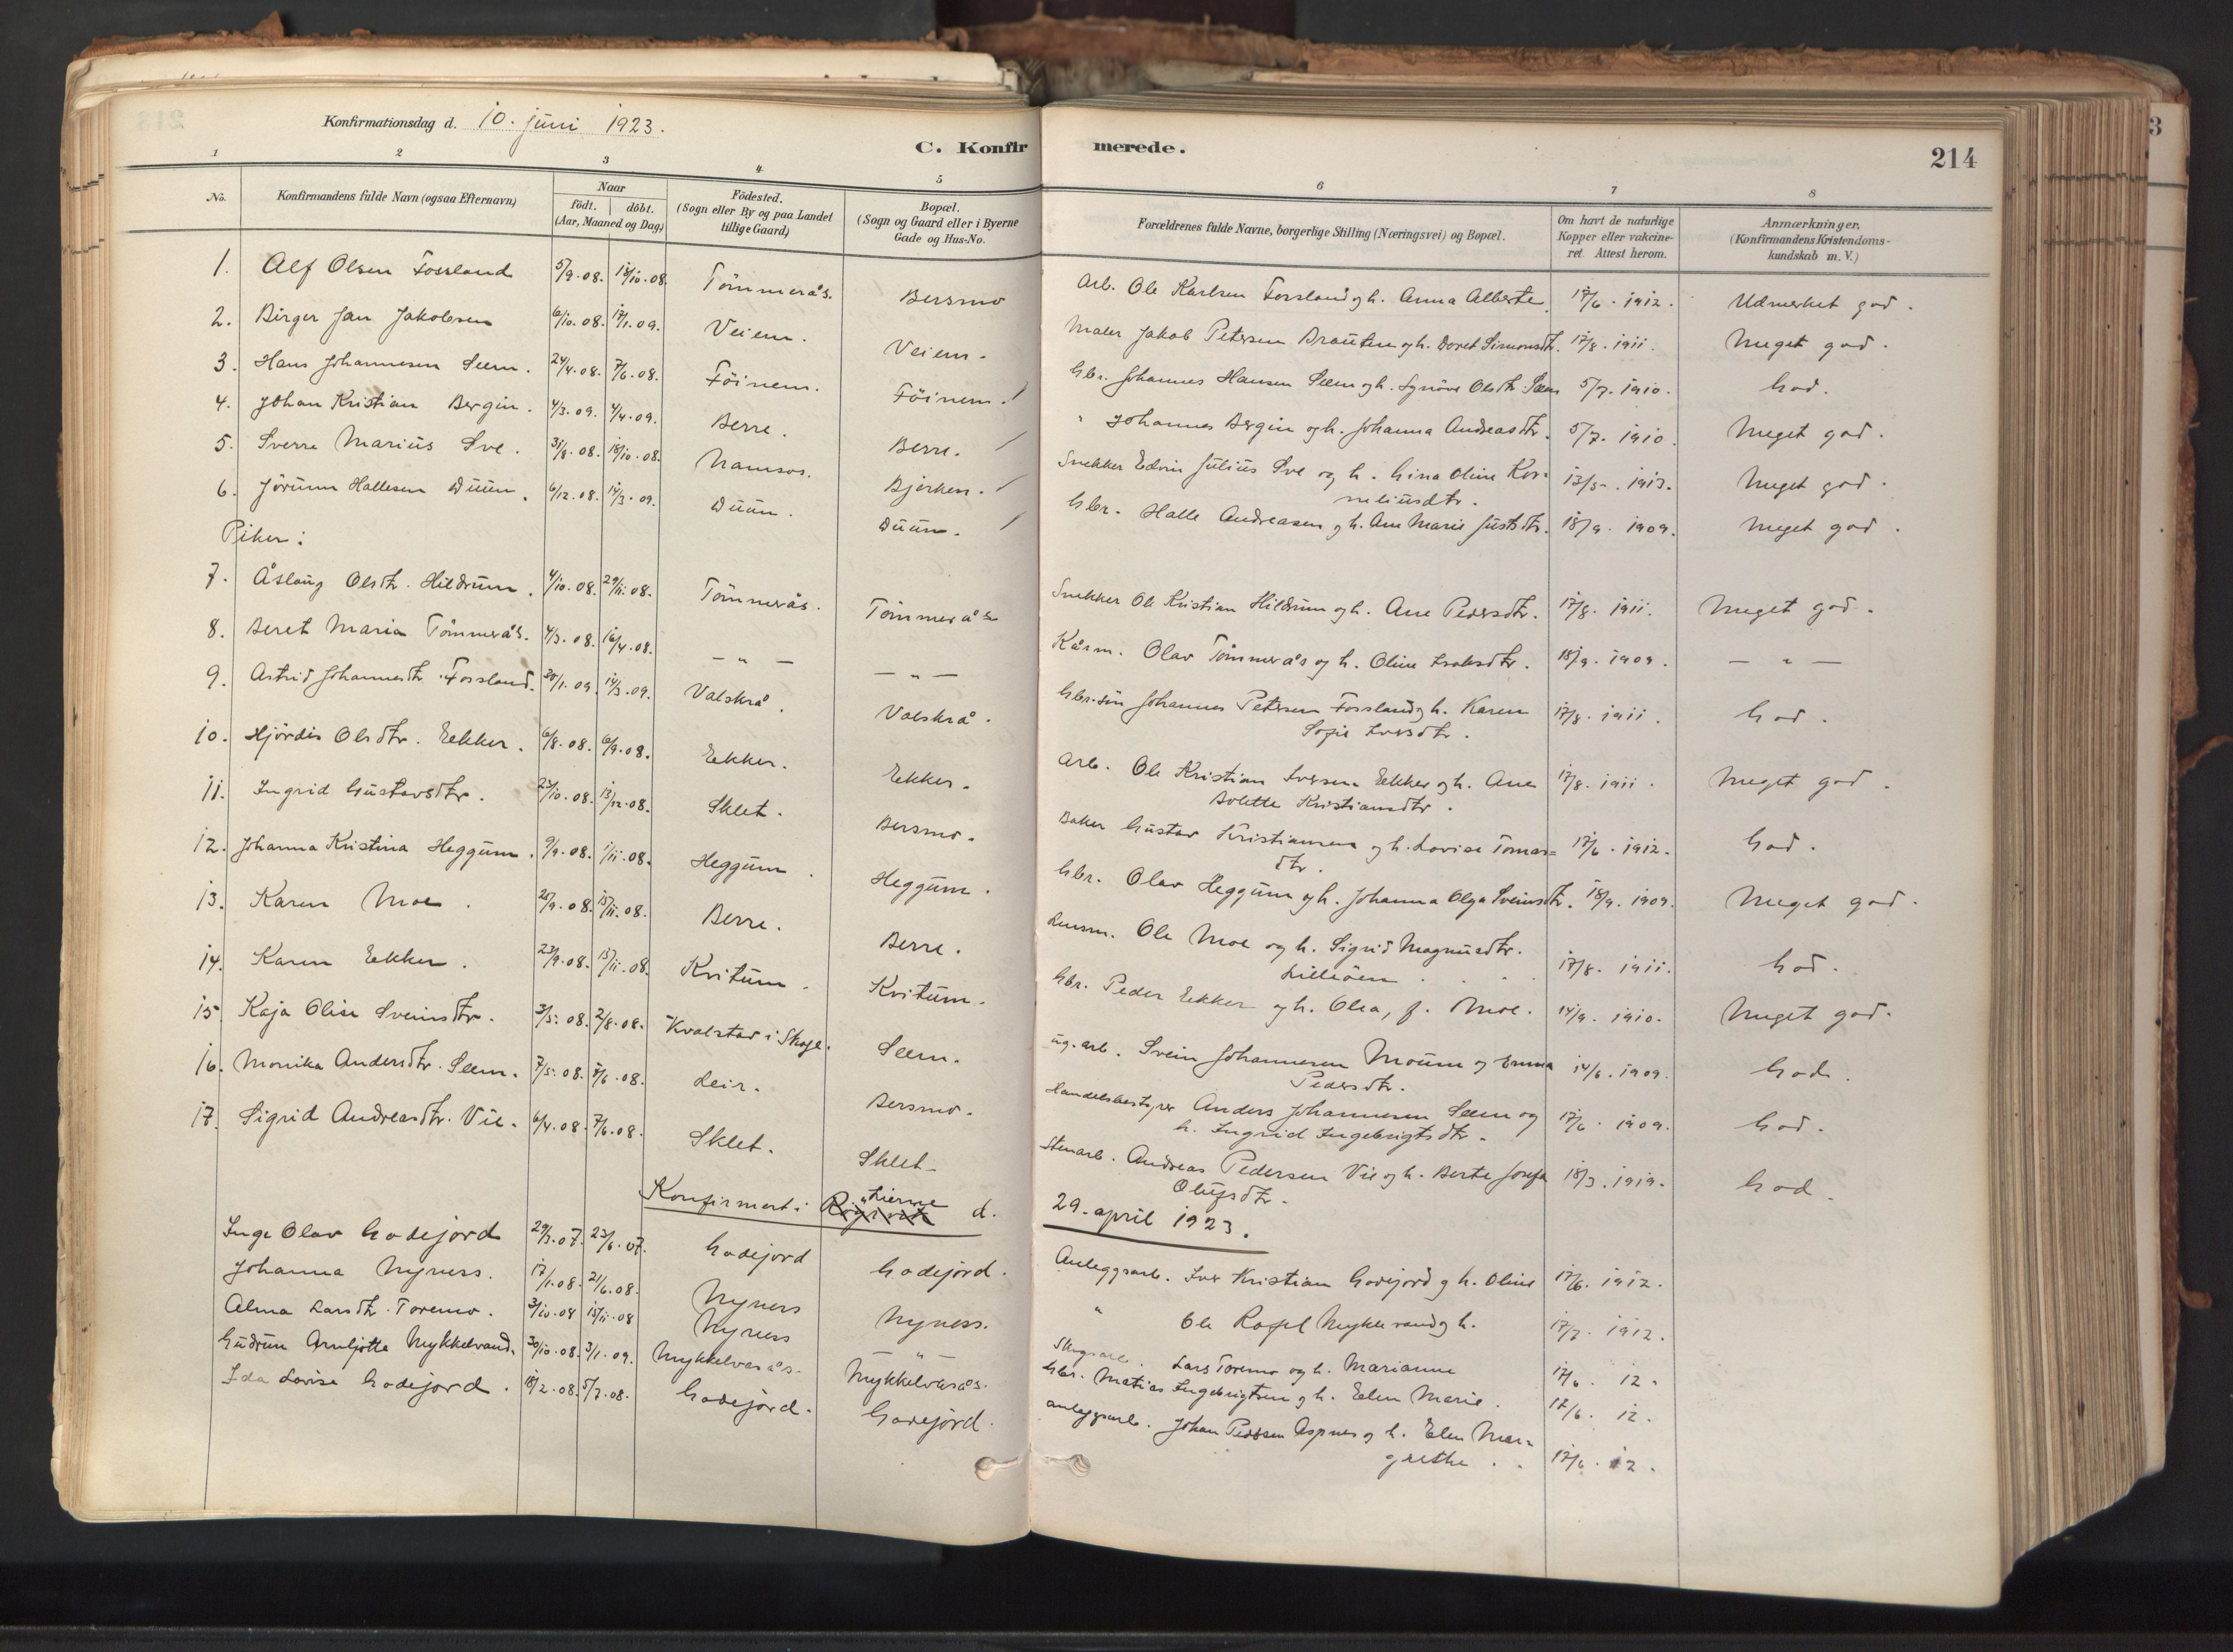 Konfirmationsdag d. 10. juni 1923.
C. Konfirmerede.
214
1 2 3 4 5 6 7 8
No. Konfirmandens fulde Navn (ogsaa Efternavn) Naar födt. | döbt. (Aar, Maaned og Dag) Födested. (Sogn eller By og paa Landet tillige Gaard) Bopæl. (Sogn og Gaard eller i Byerne Gade og Hus-No. Forældrenes fulde Navne, borgerlige Stilling (Næringsvei) og Bopæl. Om havt de naturlige Kopper eller vakcineret. Attest herom. Anmærkninger. (Konfirmandens Kristendomskundskab m. V.)
1. Alf Olsen Fossland 5/9.08. 18/10.08. Tömmerås. Bersmo Arb. Ole Karlsen Forsland og h. Anna Alberte. 17/6. 1912. Udmerket god.
2. Birger Jan Jakobsen 6/10.08. 17/1.09. Veiem. Veiem. Maler Jakob Petersen Brauten og h. Doret Simonsdtr. 17/8. 1911. Meget god.
3. Hans Johannesen Seem. 24/4.08. 7/6.08. Föinem. Föinem. / Gbr. Johannes Hansen Seem og h. Synöve Olsdtr. Seem 5/7. 1910. God.
4. Johan Kristian Bergin. 4/3.09. 4/4.09. Berre. Berre. / " Johannes Bergin og h. Johanna Andreasdtr. 5/7. 1910. Meget god.
5. Sverre Marius Sve. 31/8.08. 18/10.08. Namsos. Bjørken. / Snekker Edvin Julius Sve og h. Gina Oline Kor=
neliusdtr. 13/5. 1913. Meget god.
6. Jörunn Hallesen Duun. 6/12.08. 14/3.09. Duun. Duun. / Gbr. Halle Andreasen og h. Ane Marie Justsdtr. 18/9. 1909. Meget god.
Piker:
7. Åslaug Olsdtr. Hildrum. 4/10.08. 29/11.08. Tömmerås. Tömmerås Snekker Ole Kristian Hildrum og h. Ane Pedersdtr. 17/8. 1911. Meget god.
8. Beret Maria Tömmerås. 4/3.08. 16/4.08. — " — — " — Kårm. Olav Tömmerås og h. Oline Isaksdtr. 18/9. 1909. — " —
9. Astrid Johannesdtr. Fossland. 30/1.09. 14/3.09. Valskrå. Valskrå. Gbr.sön Johannes Petersen Fossland og h. Karen
Sofie Iversdtr. 17/8. 1911. God.
10. Hjördis Olsdtr. Eekker. 6/8.08. 6/9.08. Eekker. Eekker. Arb. Ole Kristian Iversen Eekker og h. Ane
Bolette Kristiansdtr. 17/8. 1911. Meget god.
11. Ingrid Gustavsdtr. 23/10.08. 13/12.08. Sklet. Bersmo. Baker Gustav Kristiansen og h. Lovise Tomas=
dtr. 17/6. 1912. God.
12. Johanna Kristina Heggum. 9/9.08. 1/11.08. Heggum. Heggum. Gbr. Olav Heggum og h. Johanna Olga Sveinsdtr. 18/9. 1909. Meget god.
13. Karen Moe. 25/9.08. 15/11.08. Berre. Berre. Lensm. Ole Moe og h. Sigrid Magnusdtr.
Lilleöen. 17/8. 1911. God.
14. Karen Eekker. 23/9.08. 15/11.08. Kvitum. Kvitum. Gbr. Peder Eekker og h. Olea, f. Moe. 14/9. 1910. Meget god.
15. Kaja Olise Sveinsdtr. 3/5.08. 2/8.08. Kvalstad i Skage. Seem. ug. arb. Svein Johannesen Moum og Emma
Pedersdtr. 14/6. 1909. God.
16. Monika Andersdtr. Seem. 7/5.08. 8/6.08. Leir. Bersmo. Handelsbestyrer Anders Johannesen Seem og
h. Ingrid Ingebrigtsdtr. 17/6. 1909. God.
17. Sigrid Andreasdtr. Vie. 6/4.08. 7/6.08. Sklet. Sklet. Stenarb. Andreas Pedersen Vie og h. Berte Josefa
Olufsdtr. 18/3. 1919. God.
Konfirmert i Lierne d. 29. april 1923.
Inge Olav Godejord 29/3.07. 23/6.07. Godejord Godejord. Anleggsarb. Iver Kristian Godejord og h. Oline 17/6. 1912.
Johanna Nyness. 17/1.08. 21/6.08. Nyness Nyness. " Ole Rafel Mykkelvand og h. 17/7. 1912.
Alma Larsdtr. Toremo. 3/10.08 15/11.08 Nyness — " — Skogsarb. Lars Toremo og h. Marianne 17/6. 12.
Gudrun Arnljotta Mykkelvand. 30/10.08. 3/1.09. Mykkelvasås. Mykkelvasås. Gbr. Matias Ingebrigtsen og h. Elen Marie. 17/6. 12.
Ida Lovise Godejord. 18/2.08. 5/7.08. Godejord. Godejord. anleggsarb. Johan Pedersen Aspnes og h. Elen Mar=
grethe. 17/6. 12.